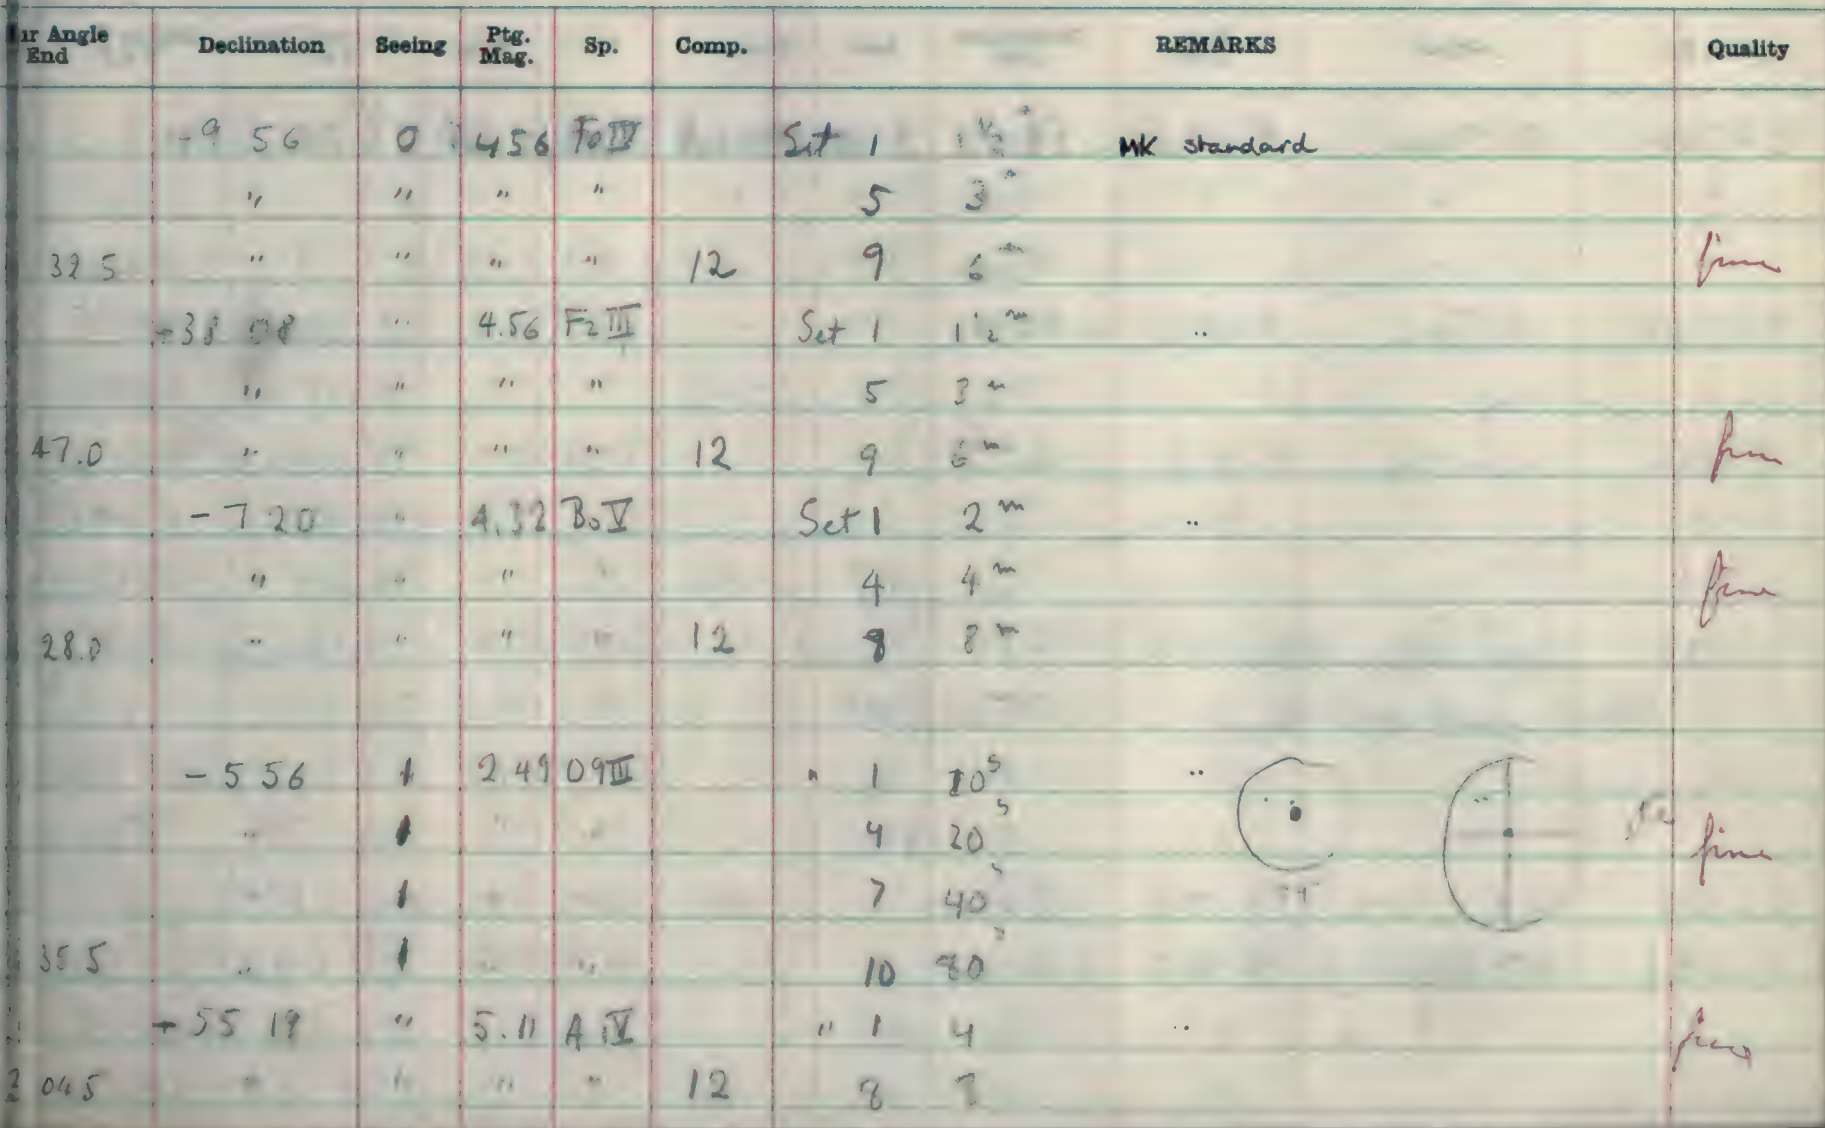 ur Angle End Declination Seeing Ptg. Mag. Sp. Comp. REMARKS Quality
-9 56 0 4 56 F0 IV Set 1 1 ½ MK standard
" " " " 5 3 m
32 5 " " " " 12 9 6 m fine
+38 08 " 4.56 F2 III Set 1 1 ½ m "
" " " " 5 3 m
47.0 " " " " 12 9 6 m fine
-7 20 " 4.32 B0 V Set 1 2 m "
" " " " 4 4 m fine
28.0 " " " " 12 8 8 m
-5 56 1 2 49 O9 III " 1 10 s "
" 1 " " 4 20 s fine
" 1 " " 7 40 s
35 5 " 1 " " 10 80 s
+55 19 " 5.11 A1 V " 1 4 " fine
2 04 5 " " " " 12 8